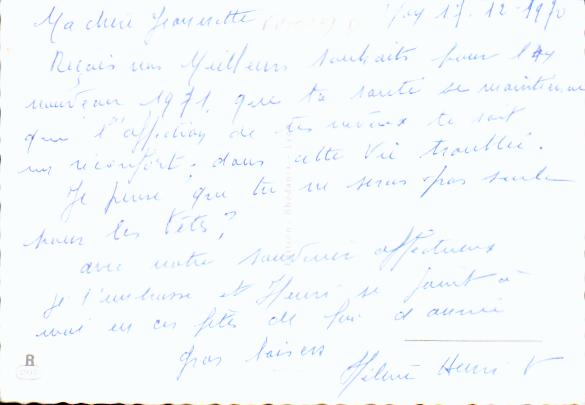 Ma chère Jeannette
17-12-1970
Reçois nos Meilleurs souhaits pour l'an
nouveau 1971, que ta santé se maintienne
que l'affection de tes neveux te soit
un réconfort, dans cette vie troublée.
Je pense que tu ne seras pas seule
pour les fêtes?
avec notre souvenir affectueux
Je t'embrasse et Henri se joint à
moi en ces fêtes de fin d'année
gros baisers
Hélène Henri V
R